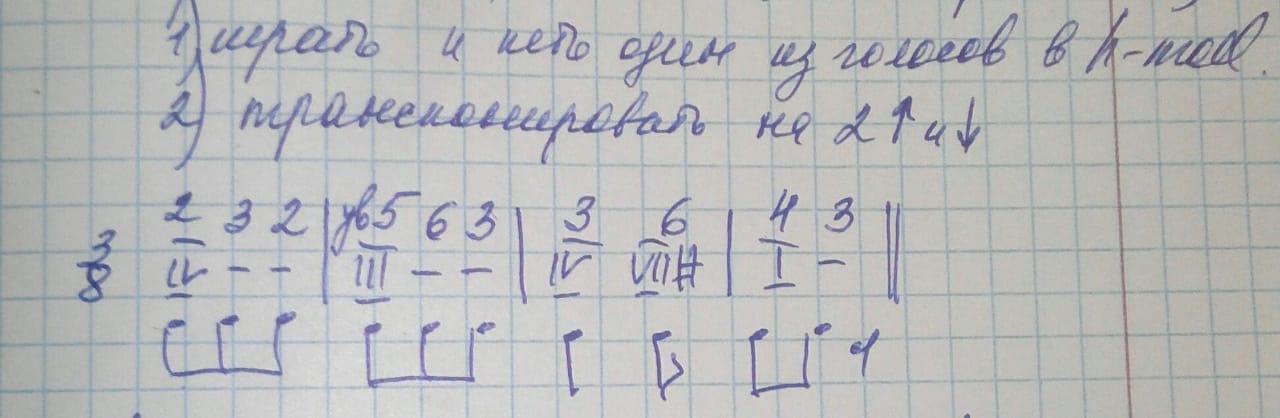 1) играть и петь один из голосов в h-moll.
2) транспонировать на 2↑ и ↓
3/8 2 3 2 | ув5 6 3 | 3 6 | 4 3 ||
IV – – | III – – | IV VII# | I – ||